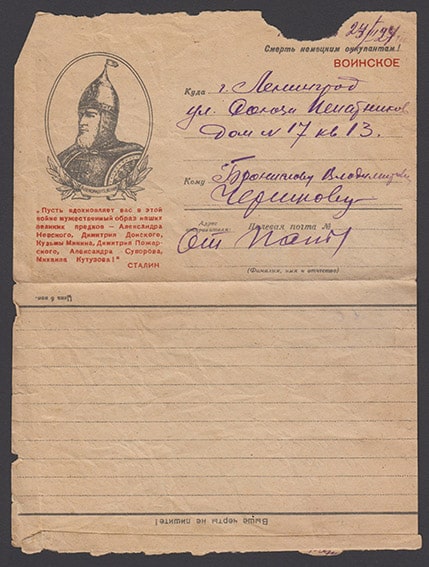 Смерть немецким оккупантам!
ВОИНСКОЕ
Куда г. Ленинград
ул. Союза Печатников
Дом № 17 кв 13.
Кому
Полевая почта №
Адрес
отправителя:
От папы
(Фамилия, имя и отчество)
„Пусть вдохновляет вас в этой
войне мужественный образ наших
великих предков — Александра
Невского, Димитрия Донского,
Кузьмы Минина, Димитрия Пожар-
ского, Александра Суворова,
Михаила Кутузова!"
СТАЛИН
Цена 6 коп.
Выше черты не пишите!